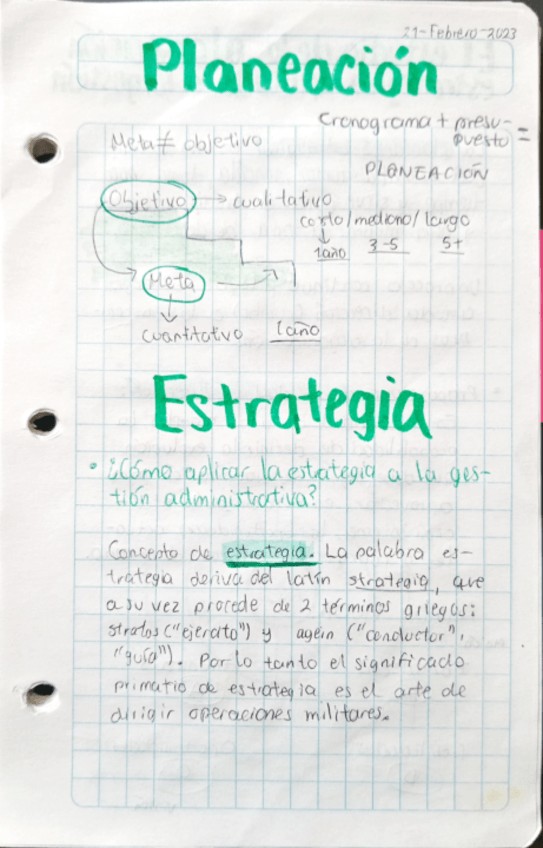 21-Febrero-2023
Planeación
Cronograma + presu-
puesto =
Meta ≠ objetivo
PLANEACIÓN
Objetivo → cualitativo
corto/mediano/largo
1año 3-5 5+
Meta
cuantitativo 1año
Estrategia
• ¿Cómo aplicar la estrategia a la ges-
tión administrativa?
Concepto de estrategia. La palabra es-
trategia deriva del latín strategia, que
a su vez procede de 2 términos griegos:
stratos ("ejercito") y agein ("conductor",
"guía"). Por lo tanto el significado
primario de estrategia es el arte de
dirigir operaciones militares.